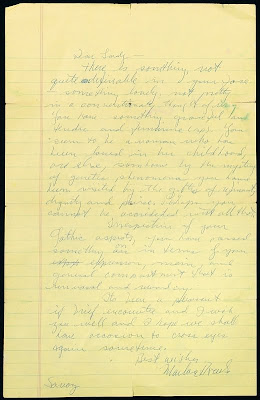 Dear Lady —
There is something not
quite definable in your face
something lovely, not pretty
in a conventional thought of way
You have something graceful and
tender and feminine (sp). You
seem to be a woman who has
been loved in her childhood,
or else, somehow by the mystery
of genetic phenomena you have
been visited by the gifts of
dignity and poise. Perhaps you
cannot be accorded with all that.
Irrespective of your
gothic aspects, you have passed
something on in terms of your
expression
general comportment that is
unusual and rewarding.
It's been a pleasant
if brief encounter and I wish
you well and I hope we shall
have occasion to cross eyes
again sometime.
Best wishes
Marlon Brando